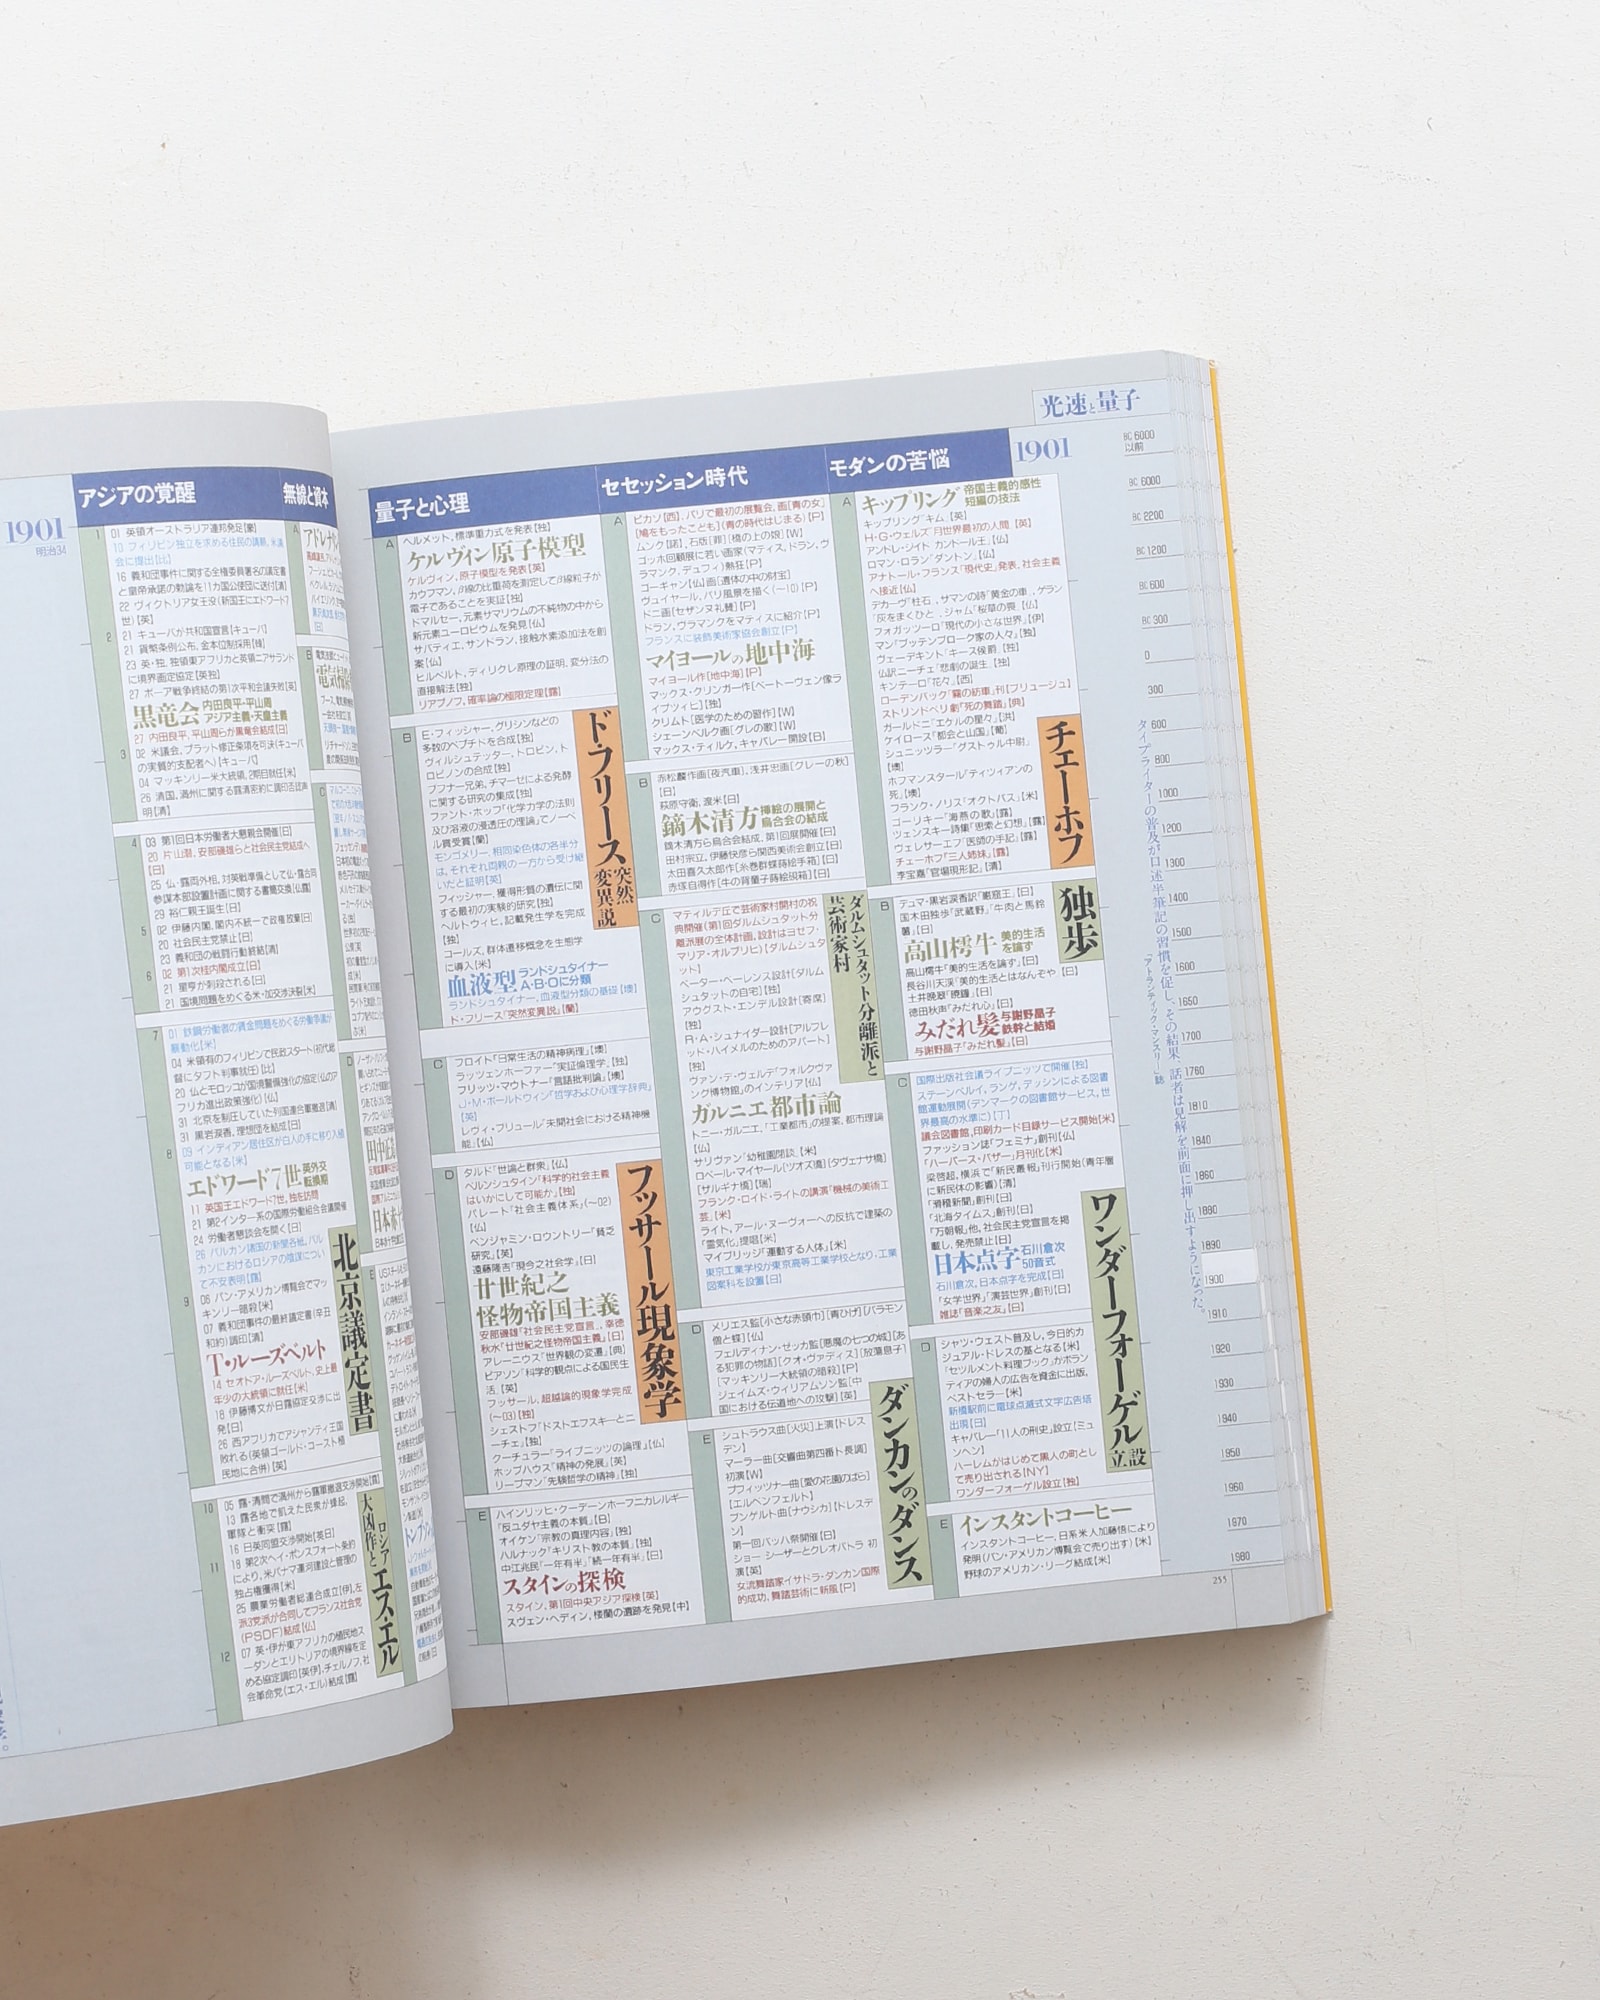 1901
明治34
アジアの覚醒
無線と資本
1
01 英領オーストラリア連邦発足【豪】
10 フィリピン独立を求める住民の請願,米議
会に提出【比】
16 義和団事件に関する全権委員署名の議定書
と皇帝承諾の勅諭を11カ国公使団に送付【清】
22 ヴィクトリア女王没(新国王にエドワード7
世)【英】
2
21 キューバが共和国宣言【キューバ】
21 貨幣条例公布,金本位制採用【韓】
23 英・独,独領東アフリカと英領ニアサランド
に境界画定協定【英独】
27 ボーア戦争終結の第1次平和会議失敗【英】
黒竜会 内田良平・平山周
アジア主義・天皇主義
27 内田良平,平山周らが黒竜会結成【日】
3
02 米議会,プラット修正条項を可決(キューバ
の実質的支配者へ)【キューバ】
04 マッキンリー米大統領,2期目就任【米】
26 清国,満州に関する露清密約に調印否認声
明【清】
4
03 第1回日本労働者大懇親会開催【日】
20 片山潜,安部磯雄らと社会民主党結成へ
【日】
25 仏・露両外相,対英戦準備として仏・露合同
参謀本部設置計画に関する書簡交換【仏露】
29 裕仁親王誕生【日】
5
02 伊藤内閣,閣内不統一で政権放棄【日】
20 社会民主党禁止【日】
23 義和団の戦闘行動終結【清】
6
02 第1次桂内閣成立【日】
21 星亨が刺殺される【日】
21 国境問題をめぐる米・加交渉決裂【米】
7
01 鉄鋼労働者の賃金問題をめぐる労働争議が
暴動化【米】
04 米領有のフィリピンで民政スタート(初代総
督にタフト判事就任)【比】
20 仏とモロッコが国境警備強化の協定(仏のア
フリカ進出政策強化)【仏】
31 北京を制圧していた列国連合軍撤退【清】
31 黒岩涙香,理想団を結成【日】
8
09 インディアン居住区が白人の手に移り入植
可能となる【米】
エドワード7世 英外交
転換期
11 英国王エドワード7世,独を訪問
21 第2インター系の国際労働組合会議開催
24 労働者懇談会を開く【日】
26 バルカン諸国の新聞各紙,バル
カンにおけるロシアの陰謀につい
て不安表明【露】
9
06 パン・アメリカン博覧会でマッ
キンリー暗殺【米】
07 義和団事件の最終議定書(辛丑
和約)調印【清】
T・ルーズベルト
14 セオドア・ルーズベルト,史上最
年少の大統領に就任【米】
18 伊藤博文が日露協定交渉に出
発【日】
26 西アフリカでアシャンティ王国
敗れる(英領ゴールド・コースト植
民地に合併)【英】
北京議定書
10
05 露・清間で満州から露軍撤退交渉開始【露】
13 露各地で飢えた民衆が蜂起,
軍隊と衝突【露】
16 日英同盟交渉開始【英日】
11
18 第2次ヘイ・ポンスフォート条約
により,米パナマ運河建設と管理の
独占権獲得【米】
25 農業労働者総連合成立【伊】,左
派3党派が合同してフランス社会党
(PSDF)結成【仏】
12
07 英・伊が東アフリカの植民地ス
ーダンとエリトリアの境界線を定
める協定調印【英伊】,チェルノフ,社
会革命党(エス・エル)結成【露】
大凶作と
ロシア
エス・エル
光速と量子
量子と心理
A
ヘルメット,標準重力式を発表【独】
ケルヴィン原子模型
ケルヴィン,原子模型を発表【英】
カウフマン,β線の比重荷を測定してβ線粒子が
電子であることを実証【独】
ドマルセー,元素サマリウムの不純物の中から
新元素ユーロピウムを発見【仏】
サバティエ,サンドラン,接触水素添加法を創
案【仏】
ヒルベルト,ディリクレ原理の証明,変分法の
直接解法【独】
リアプノフ,確率論の極限定理【露】
B
E・フィッシャー,グリシンなどの
多数のペプチドを合成【独】
ヴィルシュテッター,トロピン,ト
ロピノンの合成【独】
ブフナー兄弟,チマーゼによる発酵
に関する研究の集成【独】
ファント・ホッフ「化学力学の法則
及び溶液の浸透圧の理論」でノーベ
ル賞受賞【蘭】
モンゴメリー,相同染色体の各半分
は,それぞれ両親の一方から受け継
いだと証明【英】
フィッシャー,獲得形質の遺伝に関
する最初の実験的研究【独】
ヘルトウィヒ,記載発生学を完成
【独】
コールズ,群体遷移概念を生態学
に導入【米】
血液型 ランドシュタイナー
A・B・Oに分類
ランドシュタイナー,血液型分類の基礎【墺】
ド・フリース「突然変異説」【蘭】
ド・フリース 突然変異説
C
フロイト「日常生活の精神病理」【墺】
ラッツェンホーファー「実証倫理学」【独】
フリッツ・マウトナー「言語批判論」【墺】
J・M・ボールドウィン「哲学および心理学辞典」
【英】
レヴィ・ブリュール「未開社会における精神機
能」【仏】
D
タルド「世論と群衆」【仏】
ベルンシュタイン「科学的社会主義
はいかにして可能か」【独】
パレート「社会主義体系」(〜02)
【仏】
ベンジャミン・ロウントリー「貧乏
研究」【英】
遠藤隆吉「現今之社会学」【日】
廿世紀之
怪物帝国主義
安部磯雄「社会民主党宣言」,幸徳
秋水「廿世紀之怪物帝国主義」【日】
アレーニウス「世界観の変遷」【典】
ピアソン「科学的観点による国民生
活」【英】
フッサール,超越論的現象学完成
(〜03)【独】
シェストフ「ドストエフスキーとニ
ーチェ」【独】
クーチュラー「ライプニッツの論理」【仏】
ホッブハウス「精神の発展」【英】
リープマン「先験哲学の精神」【独】
フッサール現象学
E
ハインリッヒ・クーデンホーフ=カレルギー
「反ユダヤ主義の本質」【日】
オイケン「宗教の真理内容」【独】
ハルナック「キリスト教の本質」【独】
中江兆民「一年有半」「続一年有半」【日】
スタインの探検
スタイン,第1回中央アジア探検【英】
スヴェン・ヘディン,楼蘭の遺跡を発見【中】
セセッション時代
A
ピカソ【西】,パリで最初の展覧会,画[青の女]
[鳩をもったこども](青の時代はじまる)【P】
ムンク【諾】,石版[罪][橋の上の娘]【W】
ゴッホ回顧展に若い画家(マティス,ドラン,ヴ
ラマンク,デュフィ)熱狂【P】
ゴーギャン【仏】画[遺体の中の財宝]
ヴュイヤール,パリ風景を描く(〜10)【P】
ドニ画[セザンヌ礼賛]【P】
ドラン,ヴラマンクをマティスに紹介【P】
フランスに装飾美術家協会創立【P】
マイヨールの地中海
マイヨール作[地中海]【P】
マックス・クリンガー作[ベートーヴェン像ラ
イプツィヒ]【独】
クリムト[医学のための習作]【W】
シェーンベルク画[グレの歌]【W】
マックス・ティルケ,キャバレー開設【日】
B
赤松麟作画[夜汽車],浅井忠画[グレーの秋]
【日】
萩原守衛,渡米【日】
鏑木清方 挿絵の展開と
烏合会の結成
鏑木清方ら烏合会結成,第1回展開催【日】
田村宗立,伊藤快彦ら関西美術会創立【日】
太田喜久太郎作[糸巻群蝶蒔絵手箱]【日】
赤塚自得作[牛の背童子蒔絵硯箱]【日】
C
マティルデ丘で芸術家村開村の祝
典開催(第1回ダルムシュタット分
離派展の全体計画,設計はヨゼフ・
マリア・オルブリヒ)【ダルムシュタ
ット】
ペーター・ベーレンス設計[ダルム
シュタットの自宅]【独】
アウグスト・エンデル設計[寄席]
【独】
R・A・シュナイダー設計[アルフレ
ッド・ハイメルのためのアパート]
【独】
ヴァン・デ・ヴェルデ「フォルクヴァ
ンク博物館」のインテリア【仏】
ガルニエ都市論
トニー・ガルニエ,「工業都市」の提案,都市理論
【仏】
サリヴァン「幼稚園閑談」【米】
ロベール・マイヤール[ツオズ橋][タヴェナサ橋]
[ザルギナ橋]【瑞】
フランク・ロイド・ライトの講演「機械の美術工
芸」【米】
ライト,アール・ヌーヴォーへの反抗で建築の
「霊気化」提唱【米】
マイブリッジ「運動する人体」【米】
東京工業学校が東京高等工業学校となり,工業
図案科を設置【日】
ダルムシュタット分離派と
芸術家村
D
メリエス監[小さな赤頭巾][青ひげ][バラモン
僧と蝶]【仏】
フェルディナン・ゼッカ監[悪魔の七つの城][あ
る犯罪の物語][クオ・ヴァディス][放蕩息子]
[マッキンリー大統領の暗殺]【P】
ジェイムズ・ウィリアムソン監[中
国における伝道地への攻撃]【英】
E
シュトラウス曲[火災]上演【ドレス
デン】
マーラー曲[交響曲第四番ト長調]
初演【W】
プフィッツナー曲[愛の花園のばら]
【エルベンフェルト】
ブンゲルト曲[ナウシカ]【ドレスデ
ン】
第一回バッハ祭開催【日】
ショー「シーザーとクレオパトラ」初
演【英】
女流舞踏家イサドラ・ダンカン国際
的成功,舞踏芸術に新風【P】
ダンカンのダンス
モダンの苦悩
1901
A
キップリング 帝国主義的感性
短編の技法
キップリング「キム」【英】
H・G・ウェルズ「月世界最初の人間」【英】
アンドレ・ジイド「カンドール王」【仏】
ロマン・ロラン「ダントン」【仏】
アナトール・フランス「現代史」発表,社会主義
へ接近【仏】
デカーヴ「柱石」,サマンの詩「黄金の車」,ゲラン
「灰をまくひと」,ジャム「桜草の喪」【仏】
フォガッツーロ「現代の小さな世界」【伊】
マン「ブッデンブローク家の人々」【独】
ヴェーデキント「キース侯爵」【独】
仏訳ニーチェ「悲劇の誕生」【独】
キンテーロ「花々」【西】
ローデンバック「霧の紡車」刊【ブリュージュ】
ストリンドベリ劇「死の舞踏」【典】
ガールドニ「エゲルの星々」【洪】
ケイロース「都会と山国」【葡】
シュニッツラー「グストゥル中尉」
【墺】
ホフマンスタール「ティツィアンの
死」【墺】
フランク・ノリス「オクトパス」【米】
ゴーリキー「海燕の歌」【露】
ツェンスキー詩集「思索と幻想」【露】
ヴェレサーエフ「医師の手記」【露】
チェーホフ「三人姉妹」【露】
李宝嘉「官場現形記」【清】
チェーホフ
B
デュマ・黒岩涙香訳「巌窟王」【日】
国木田独歩「武蔵野」「牛肉と馬鈴
薯」【日】
高山樗牛 美的生活
を論ず
高山樗牛「美的生活を論ず」【日】
長谷川天渓「美的生活とはなんぞや」【日】
土井晩翠「暁鐘」【日】
徳田秋声「みだれ心」【日】
みだれ髪 与謝野晶子
鉄幹と結婚
与謝野晶子「みだれ髪」【日】
独歩
C
国際出版社会議ライプニッツで開催【独】
ステーンベルイ,ランゲ,デッシンによる図書
館運動展開(デンマークの図書館サービス,世
界最高の水準に)【丁】
議会図書館,印刷カード目録サービス開始【米】
ファッション誌「フェミナ」創刊【仏】
「ハーパース・バザー」月刊化【米】
梁啓超,横浜で「新民叢報」刊行開始(青年層
に新民体の影響)【清】
「滑稽新聞」創刊【日】
「北海タイムス」創刊【日】
「万朝報」他,社会民主党宣言を掲
載し,発売禁止【日】
日本点字 石川倉次
50音式
石川倉次,日本点字を完成【日】
「女学世界」「演芸世界」創刊【日】
雑誌「音楽之友」【日】
D
シャツ・ウェスト普及し,今日的カ
ジュアル・ドレスの基となる【米】
「セツルメント料理ブック」がボラン
ティアの婦人の広告を資金に出版,
ベストセラー【米】
新橋駅前に電球点滅式文字広告塔
出現【日】
キャバレー「11人の刑史」設立【ミュ
ンヘン】
ハーレムがはじめて黒人の町とし
て売り出される【NY】
ワンダーフォーゲル設立【独】
ワンダーフォーゲル設立
E
インスタントコーヒー
インスタントコーヒー,日系米人加藤悟により
発明(パン・アメリカン博覧会で売り出す)【米】
野球のアメリカン・リーグ結成【米】
BC 6000
以前
BC 6000
BC 2200
BC 1200
BC 600
BC 300
0
300
600
800
1000
1200
1300
1400
1500
1600
1650
1700
1760
1810
1840
1860
1880
1890
1900
1910
1920
1930
1940
1950
1960
1970
1980
タイプライターの普及が口述半筆記の習慣を促し、その結果、話者は見解を前面に押し出すようになった。
『アトランティック・マンスリー』誌
255